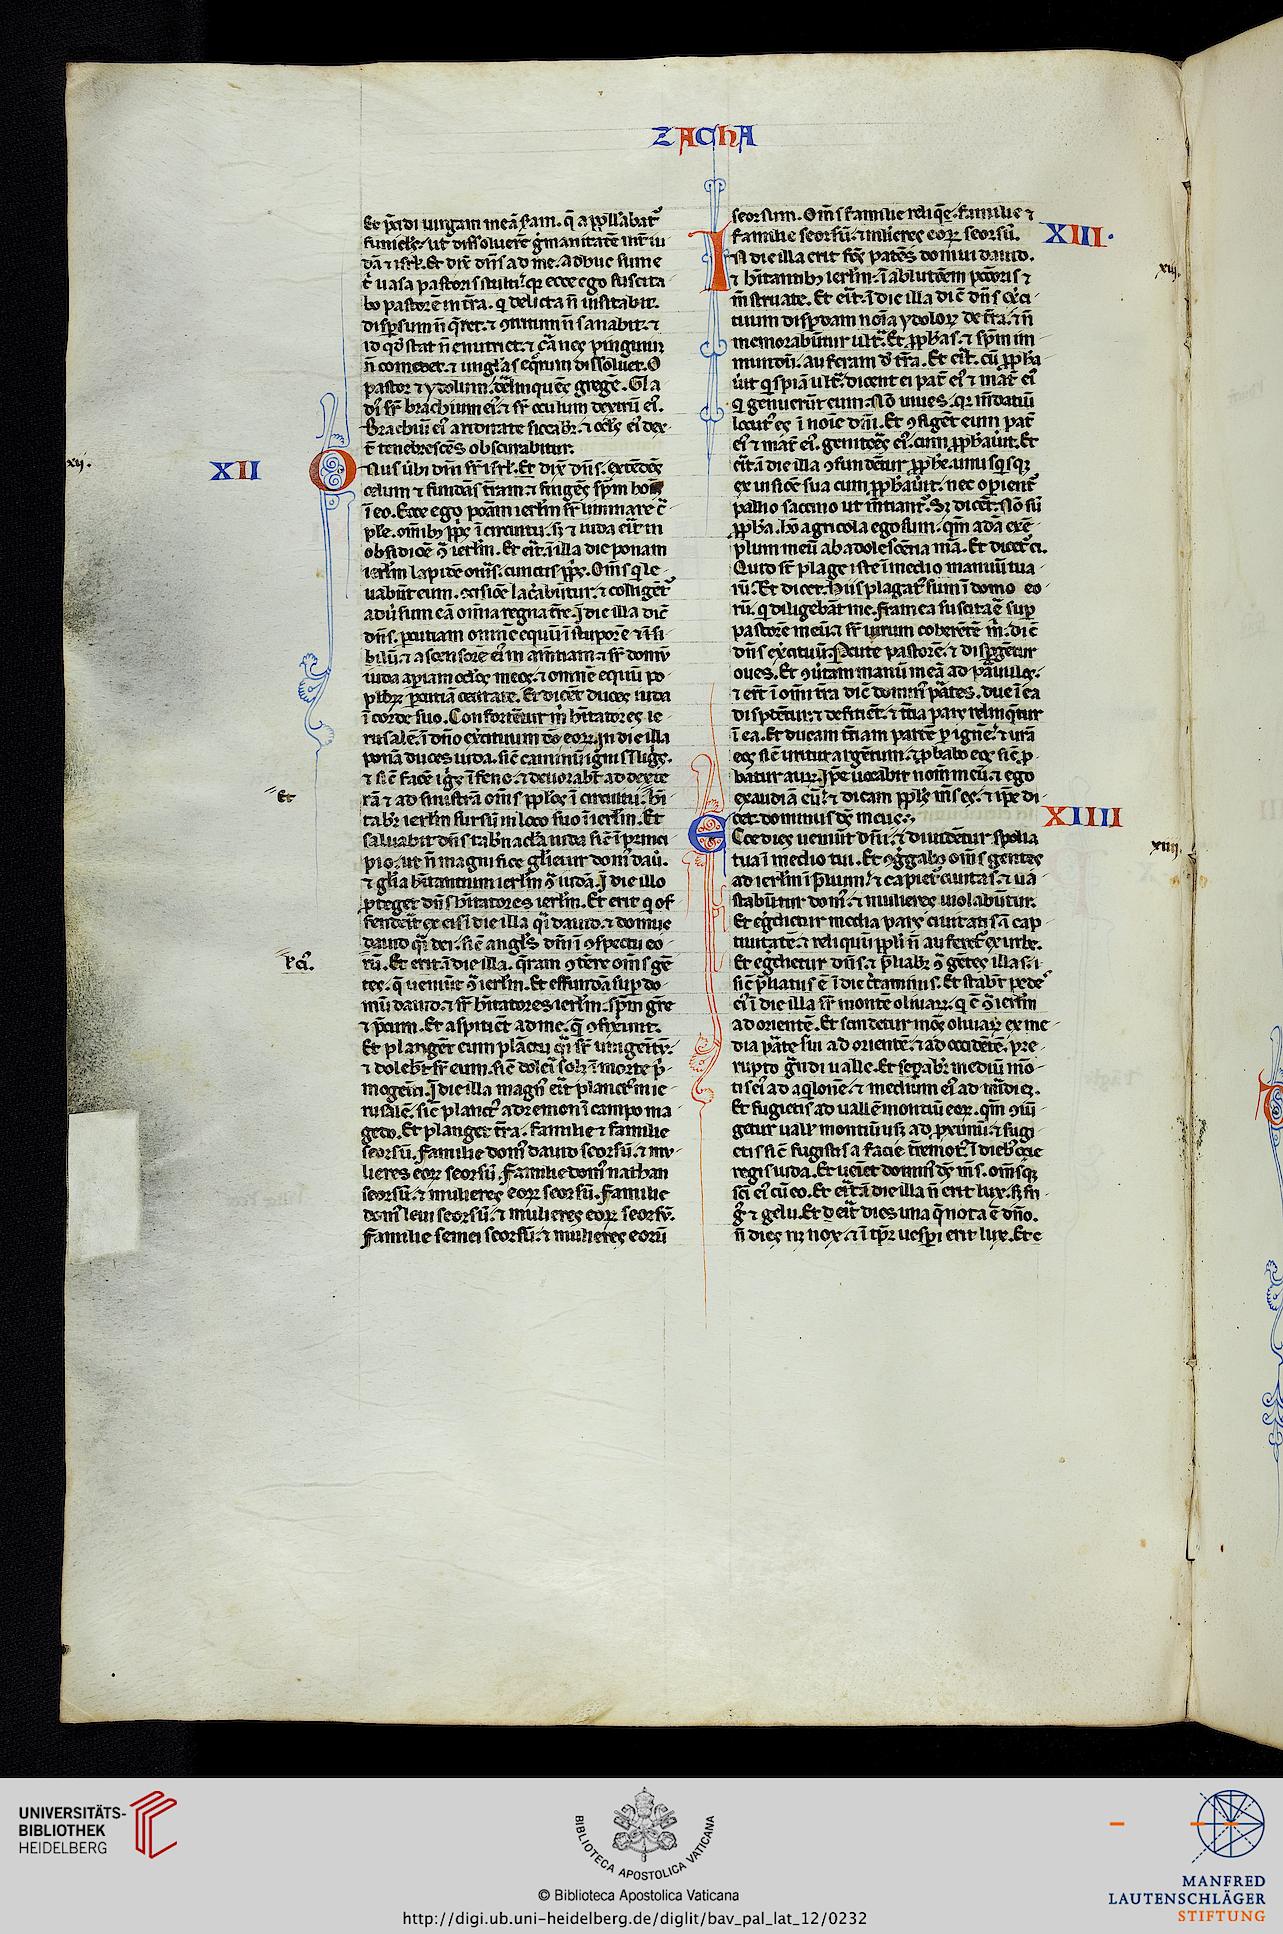 ZACHA
Et p̄cidi uirgam meā scd̄am. q̄ appell'abat᷑
funicl's. ut dissoluerē gͥmanitatē int̄ iu
dā ⁊ isrl'. Et dix̄ dn̄s ad me. Adhuc sume
t̄ uasa pastoris stulti. qꝛ ecce ego suscita
bo pastorē in t̄ra. q̄ delicta n̄ uisitabit.
dispsum n̄ q̄ret. ⁊ ꝯtritum n̄ sanabit. ⁊
id qd̄ stat n̄ enutriet. ⁊ carnes pinguiū
n̄ comedet. ⁊ ungl'as eoꝝ dissoluet. O
pastor ⁊ ydolum. derelinquēs gregē. Gla
di' sr̄ brachium ei'. ⁊ sr̄ oculum dextrū ei'.
Brachiū ei' ariditate siccabit᷑. ⁊ ocl's ei' dex
t̄ tenebrescēs obscurabitur.
xij.
XII
Onus ūbi dn̄i sr̄ isrl'. Et dix̄ dn̄s. extēdēs
celum ⁊ fundās t̄ram. ⁊ fingēs sp̄m hoīs
ī eo. Ecce ego ponā ierl'm sr̄ liminare c̄
pl'e. omībꝫ ppl's ī circuitu. sꝫ ⁊ iuda erit in
obsidiōe 9ͣ ierl'm. Et erit. ī illa die ponam
ierl'm lapidē on̄is. cunctis ppl's. Om̄s q le
uabūt eum. ꝯcisiōe lac̄abūtur. ⁊ colligēt᷑
adūsum eā omnia regna t̄re. Ī die illa dic̄
dn̄s. pcutiam omnē equū ī stuporē ⁊ ī si
bilū. ⁊ ascensorē ei' in amētiam. ⁊ sr̄ domū
iuda apiam ocl'os meos. ⁊ omnē equū po
pl'oꝝ pcutiā cecitate. Et dicēt duces iuda
ī corde suo. Confortētur m̄ hītatores ie
rusalē. ī dn̄o exercituum dō eoꝝ. In die illa
ponā duces iuda. sic̄ caminū ignis ī lignis.
⁊ sic̄ facē ignis ī feno. ⁊ deuorabt̄ ad dexte
rā ⁊ ad sinistrā om̄s ppl'os ī circuitu. ⁊ hī
tabit᷑ ierl'm sursū in loco suo ī ierl'm. Et
Et
saluabit dn̄s tab'nacl'a iuda sic̄ ī princi
pio. ut n̄ magnifice gl'ietur dom' dauid.
⁊ gl'ia hītantium ierl'm 9ͣ iudā. Ī die illo
proteget dn̄s hītatores ierl'm. Et erit q of
fenderit ex eis ī die illa q̄i dauid. ⁊ domus
dauid q̄i dei. sic̄ angl's dn̄i ī ꝯspectu eo
rū. Et erit ī die illa. q̄ram ꝯtere om̄s gē
tes. q̄ ueniūt 9ͣ ierl'm. Et effundā sup do
mū dauid. ⁊ sr̄ hītatores ierl'm. sp̄m gr̄e
⁊ p̄cum. Et aspiciēt ad me. quē ꝯfixunt.
Et plangēt eum plāctu q̄i sr̄ unigenitū.
⁊ dolebt̄ sr̄ eum. sic̄ doleri solꝫ ī morte p̄
mogeiti. Ī die illa magn' erit planct' in ie
rusalē. sic̄ planct' adremon ī campo ma
gedo. Et planget t̄ra. familie ⁊ familie
seorsū. familie dom' dauid seorsū. ⁊ mu
lieres eoꝝ seorsū. Familie dom' nathan
seorsū. ⁊ mulieres eoꝝ seorsū. Familie
dom' leui seorsū. ⁊ mulieres eoꝝ seorsū.
Familie semei seorsū. ⁊ mulieres eorū
seorsum. Om̄s familie reliq̄e. familie ⁊
familie seorsū. ⁊ mulieres eoꝝ seorsū.
XIII.
In die illa erit fōs patēs domui dauid.
⁊ hītantibꝫ ierl'm. ī ablutiōem pctōris ⁊
m̄struate. Et erit ī die illa dic̄ dn̄s ex̄ci
tuum. disperdam noīa ydoloꝝ de t̄ra. ⁊ n̄
memorabūtur ult̄. Et pphās. ⁊ sp̄m im
mundū. auferam d̄ t̄ra. Et erit. cū pphā
uit̄ qspiā ult̄. dicent ei pat̄ ei' ⁊ mat̄ ei'
q genuerūt eum. Nō uiues. qꝛ m̄datiū
locut' es ī noīe dn̄i. Et ꝯfigēt eum pat̄
ei' ⁊ mat̄ ei'. genitores ei'. cum pphauit̄. Et
erit ī die illa ꝯfundētur pphe. unusqsqꝫ
ex uisiōe sua cum pphauit̄. nec opient᷑
pallio saccino ut m̄tiant᷑. Sꝫ dicet. Nō sū
pphā. hō agricola ego sum. qm̄ adā exē
plum meū ab adolescētia mā. Et dicet᷑ ei.
Quid st̄ plage iste ī medio manuū tua
rū. Et dicet. his plagat' sum ī domo eo
rū. q diligebāt me. Framea suscitare sup
pastorē meū. ⁊ sr̄ uirum coherētē m̄. dic̄
dn̄s ex̄cituū. Pcute pastorē. ⁊ dispgētur
oues. Et ꝯuertam manū meā ad paruulos.
⁊ erit ī omī t̄ra dic̄ domin'. partes due ī ea
dispdētur. ⁊ deficiēt. ⁊ t̄tia pars relinq̄tur
ī ea. Et ducam t̄tiam partē p ignē. ⁊ urā
eos sic̄ uritur argētum. ⁊ pbabo eos sic̄ p
batur auꝝ. Ip̄e uocabit nom̄ meū. ⁊ ego
exaudiā eū. ⁊ dicam ppl's m̄s es. ⁊ ip̄e di
cet. dominus ds̄ meus.
XIIII
Ecce dies ueniūt dn̄i. ⁊ diuidētur spolia
tua ī medio tui. Et ꝯg̊gabo om̄s gentes
ad ierl'm ī p̄lium. ⁊ capiet᷑ ciuitas. ⁊ ua
stabūtur dom'. ⁊ mulieres uiolabūtur.
Et eg̊dietur media pars ciuitatis ī cap
tiuitatē. ⁊ reliquū ppli n̄ auferet᷑ ex urbe.
Et eg̊dietur dn̄s. ⁊ p̄liabit᷑ 9ͣ gētes illas.
sic̄ p̄liatus ē ī die c̄taminis. Et stabt̄ pedes
ei' ī die illa sr̄ montē oliuaꝝ. q ē 9ͣ ierl'm
ad orientē. Et scindetur mōs oliuaꝝ ex me
dia parte sui ad orientē. ⁊ ad occidētē. pre
rupto g̊ndi ualle. Et sepabit᷑ mediū mō
tis ei' ad aqilonē. ⁊ medium ei' ad m̄idiē.
Et fugietis ad uallē montiū eoꝝ. qm̄ ꝯiū
getur uall' montiū usqꝫ ad pximū. ⁊ fugi
etis sic̄ fugistis a facie t̄remot' ī dieb' ozie
regis iuda. Et ueniet dominus ds̄ m̄s. om̄sqꝫ
sc̄i ei' cū eo. Et erit ī die illa n̄ erit lux. sꝫ fri
g' ⁊ gelu. Et erit dies una q̄ nota ē dn̄o.
n̄ dies nꝫ nox. ⁊ ī tp̄r uespi erit lux. Et e
xiij.
xiiij.
UNIVERSITÄTS-
BIBLIOTHEK
HEIDELBERG
BIBLIOTECA APOSTOLICA VATICANA
© Biblioteca Apostolica Vaticana
http://digi.ub.uni-heidelberg.de/diglit/bav_pal_lat_12/0232
MANFRED
LAUTENSCHLÄGER
STIFTUNG